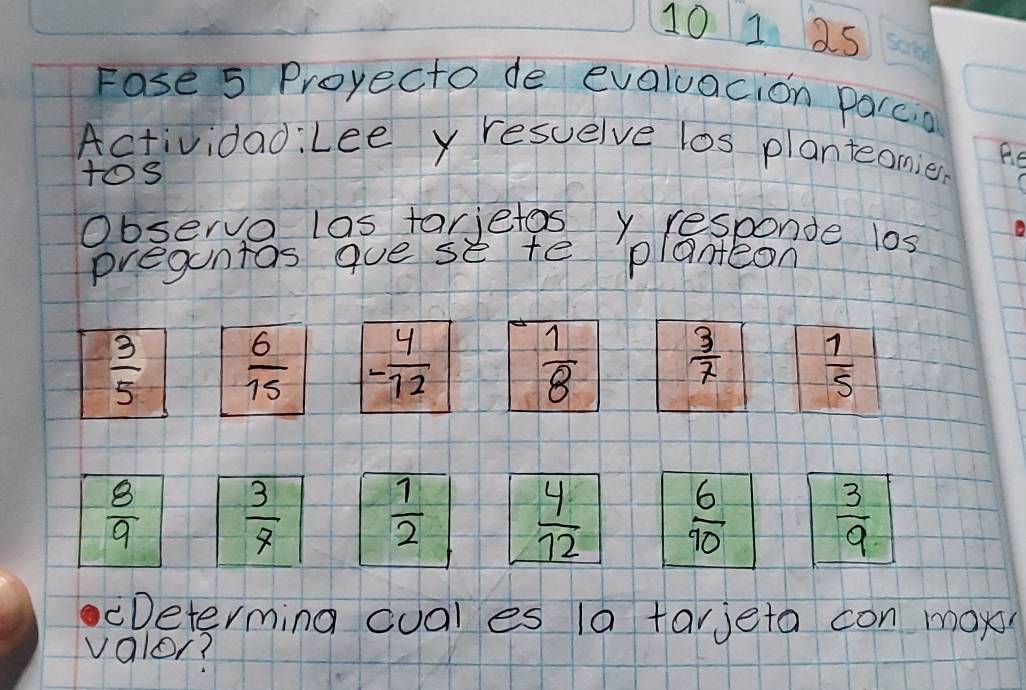 10 1 25
Fase 5 Proyecto de evaluación parcial
Actividad: Lee y resuelve los planteamien
tos
Observa las tarjetas y responde las
preguntas que se te plantean
3/5 6/15 -4/12 1/8 3/7 1/5
8/9 3/7 1/2 4/12 6/10 3/9
¿Determina cual es la tarjeta con mayor
valor?